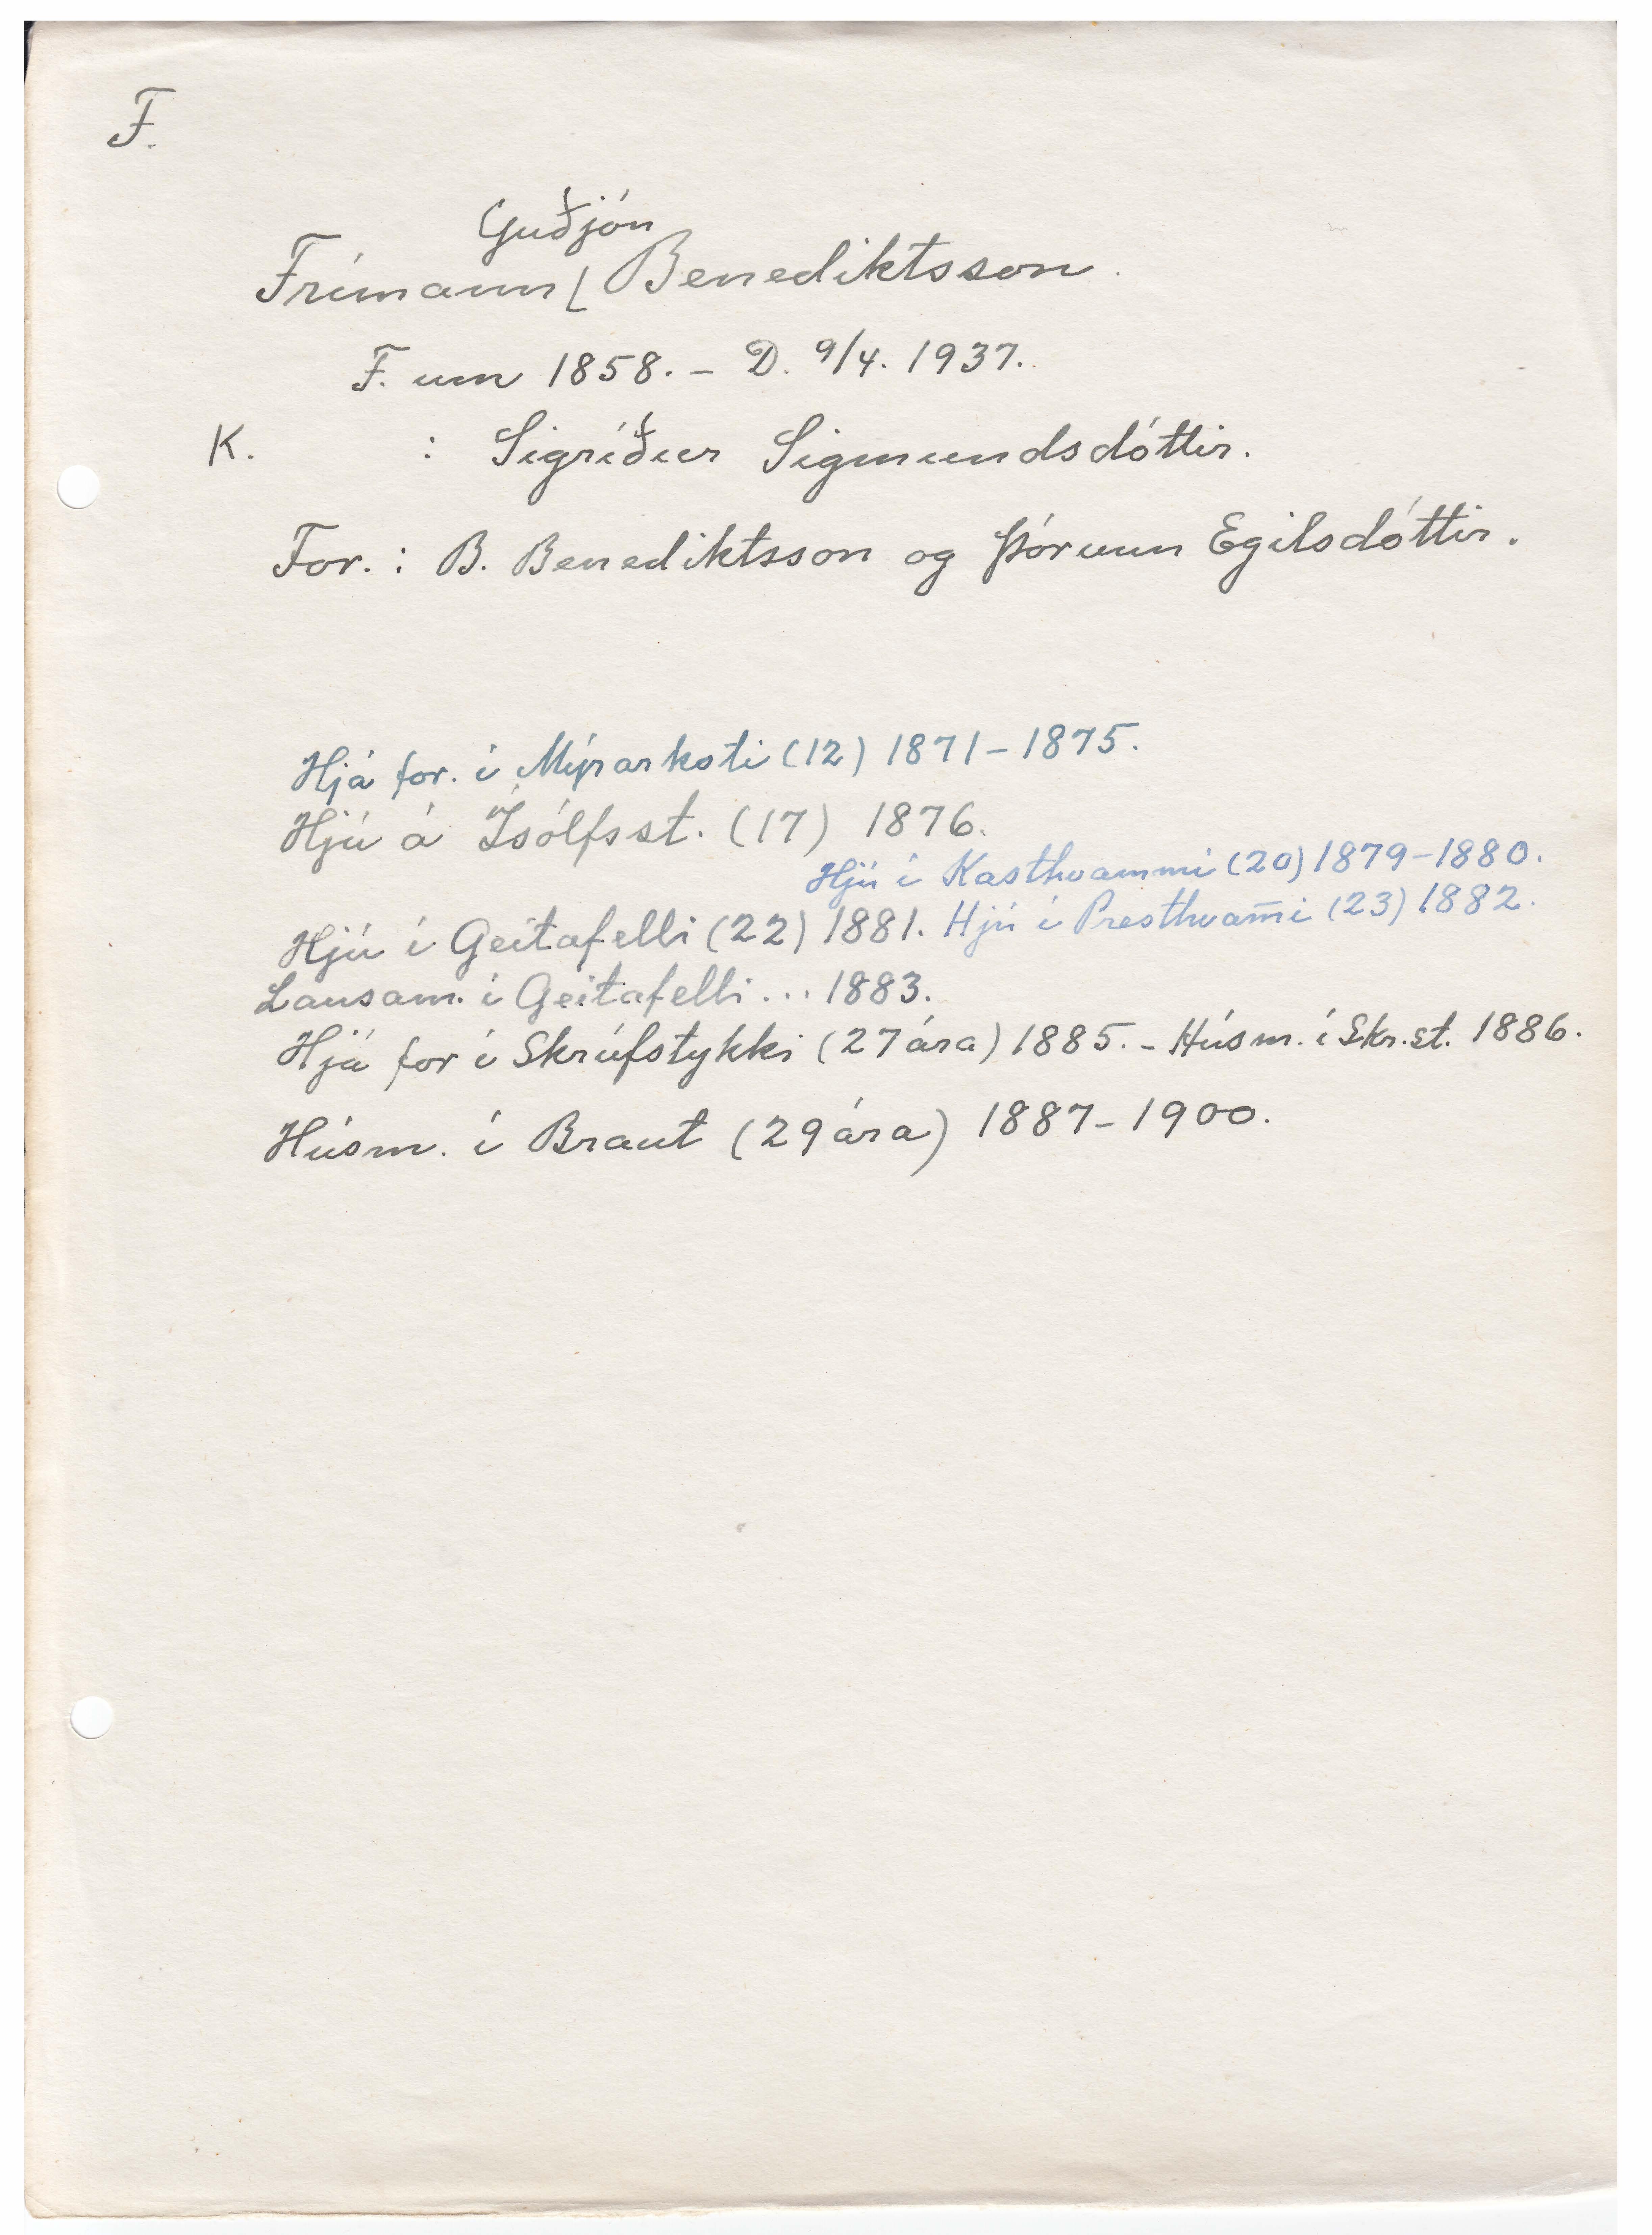 F.
Guðjón
Frímann Benediktsson.
F. um 1858. - D. 9/4. 1937.
K. : Sigríður Sigmundsdóttir.
For. : B. Benediktsson og Þórunn Egilsdóttir.
Hjá for. í Mýrarkoti (12) 1871-1875.
Hjú á Ísólfsst. (17) 1876.
Hjú í Kasthvammi (20) 1879-1880.
Hjú í Geitafelli (22) 1881. Hjú í Presthvam̄i (23) 1882.
Lausam. í Geitafelli... 1883.
Hjá for í Skrúfstykki (27 ára) 1885. - Húsm. í Skr.st. 1886.
Húsm. í Braut (29 ára) 1887-1900.